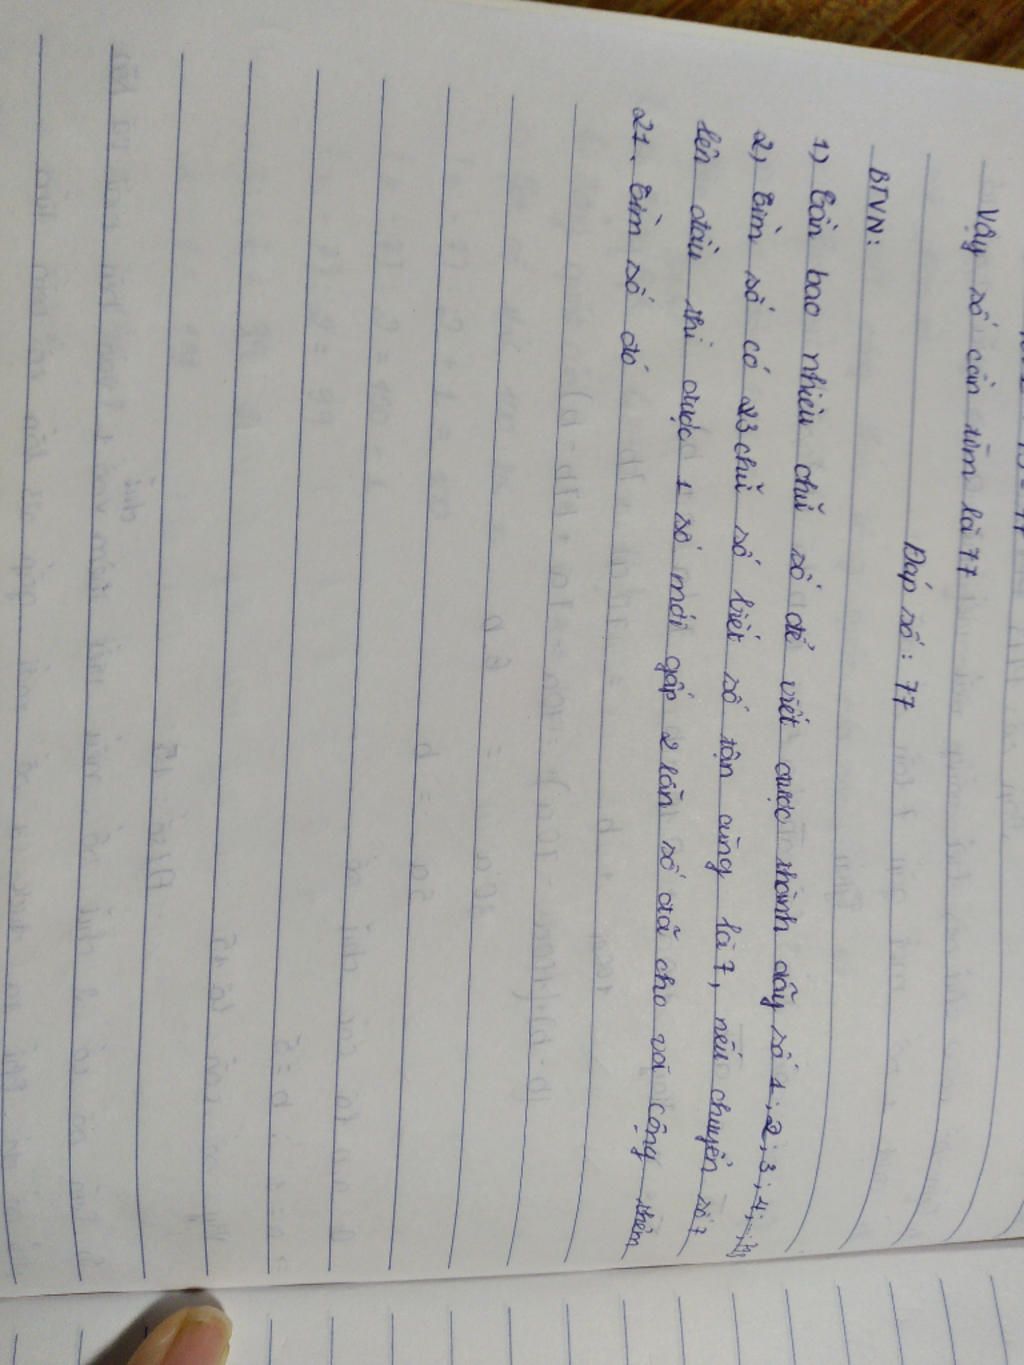 Vậy số cần tìm là 77
Đáp số : 77
BTVN:
1) Cần bao nhiêu chữ số để viết được thành dãy số 1; 2; 3; 4;
2, Tìm số có 23 chữ số biết số tận cùng là 7, nếu chuyển số 7
lên đầu thì được 1 số mới gấp 2 lần số đã cho và cộng thêm
21. Tìm số đó